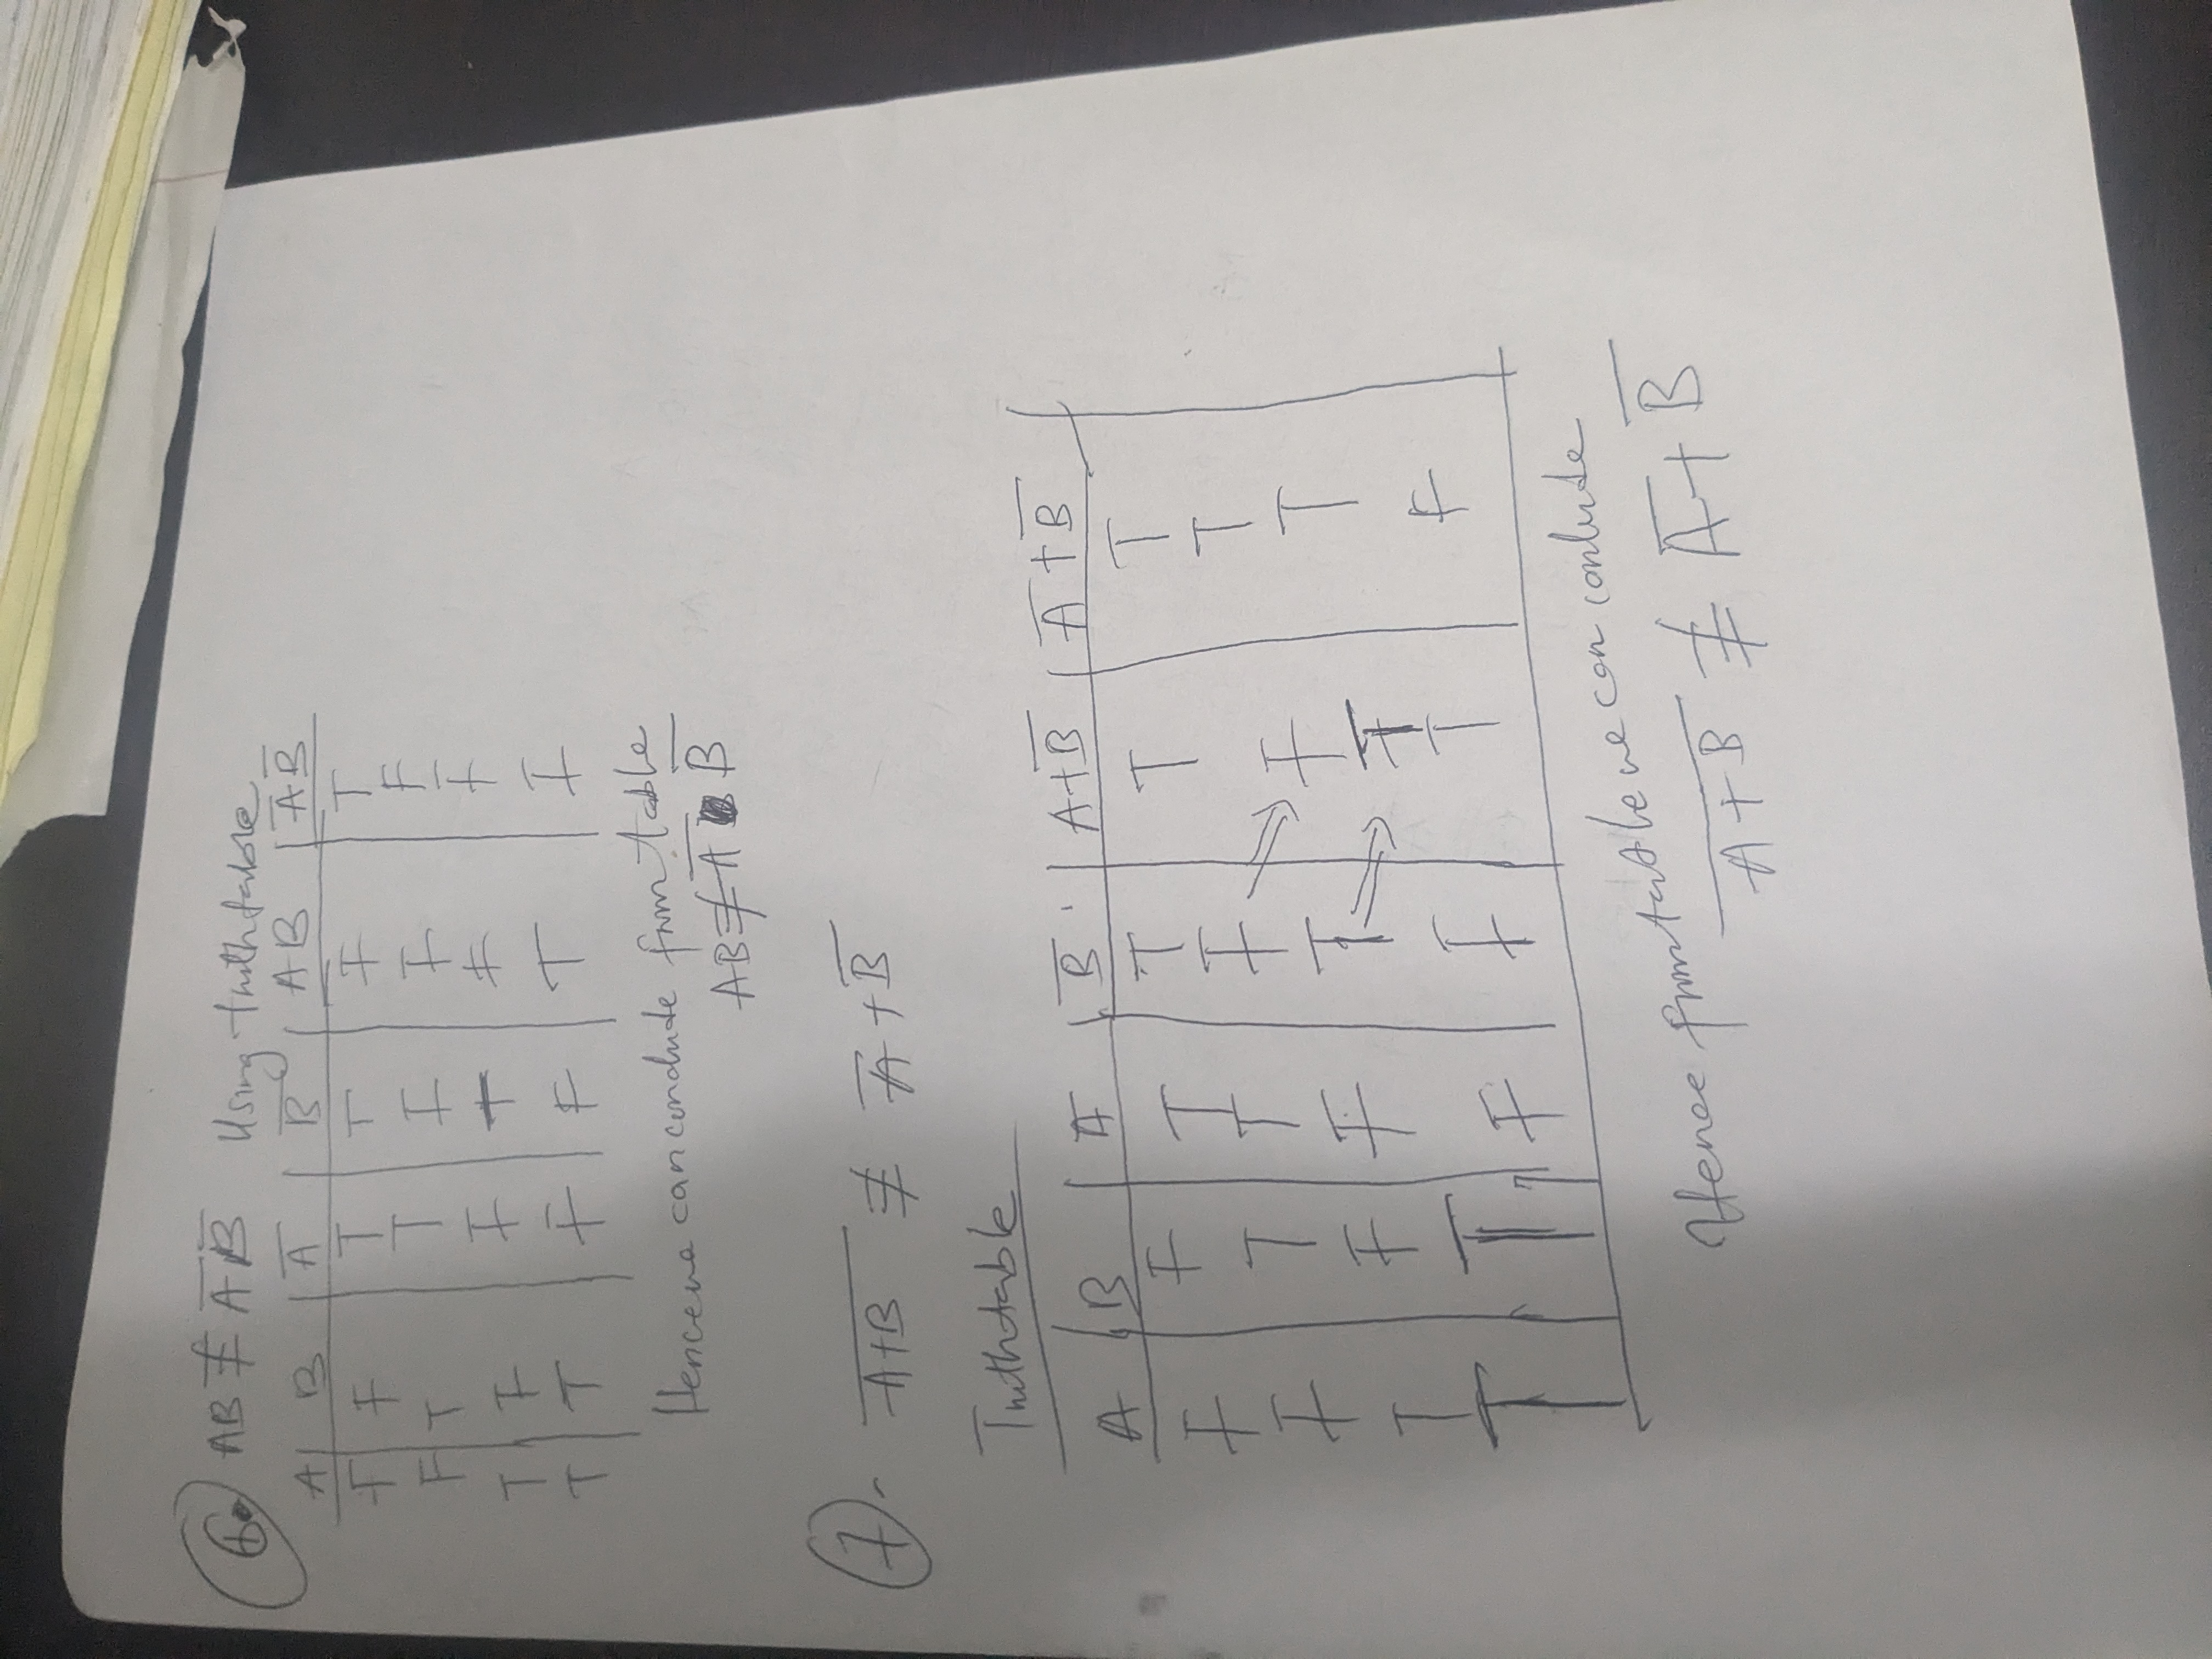 6. AB ≠ A̅ B̅ Using truthtable
A | B | A̅ | B̅ | AB | A̅ B̅
F F T T F T
F T T F F F
T F F T F F
T T F F T F
Hence we can conclude from table
AB ≠ A̅ B̅
7. A̅+̅B̅ ≠ A̅ + B̅
Truthtable
A | B | A̅ | B̅ | A+B̅ | A̅ + B̅
F F T T T T
F T T F ⇒ F T
T F F T ⇒ T T
T T F F T F
Hence from table we can conclude
A̅+̅B̅ ≠ A̅ + B̅